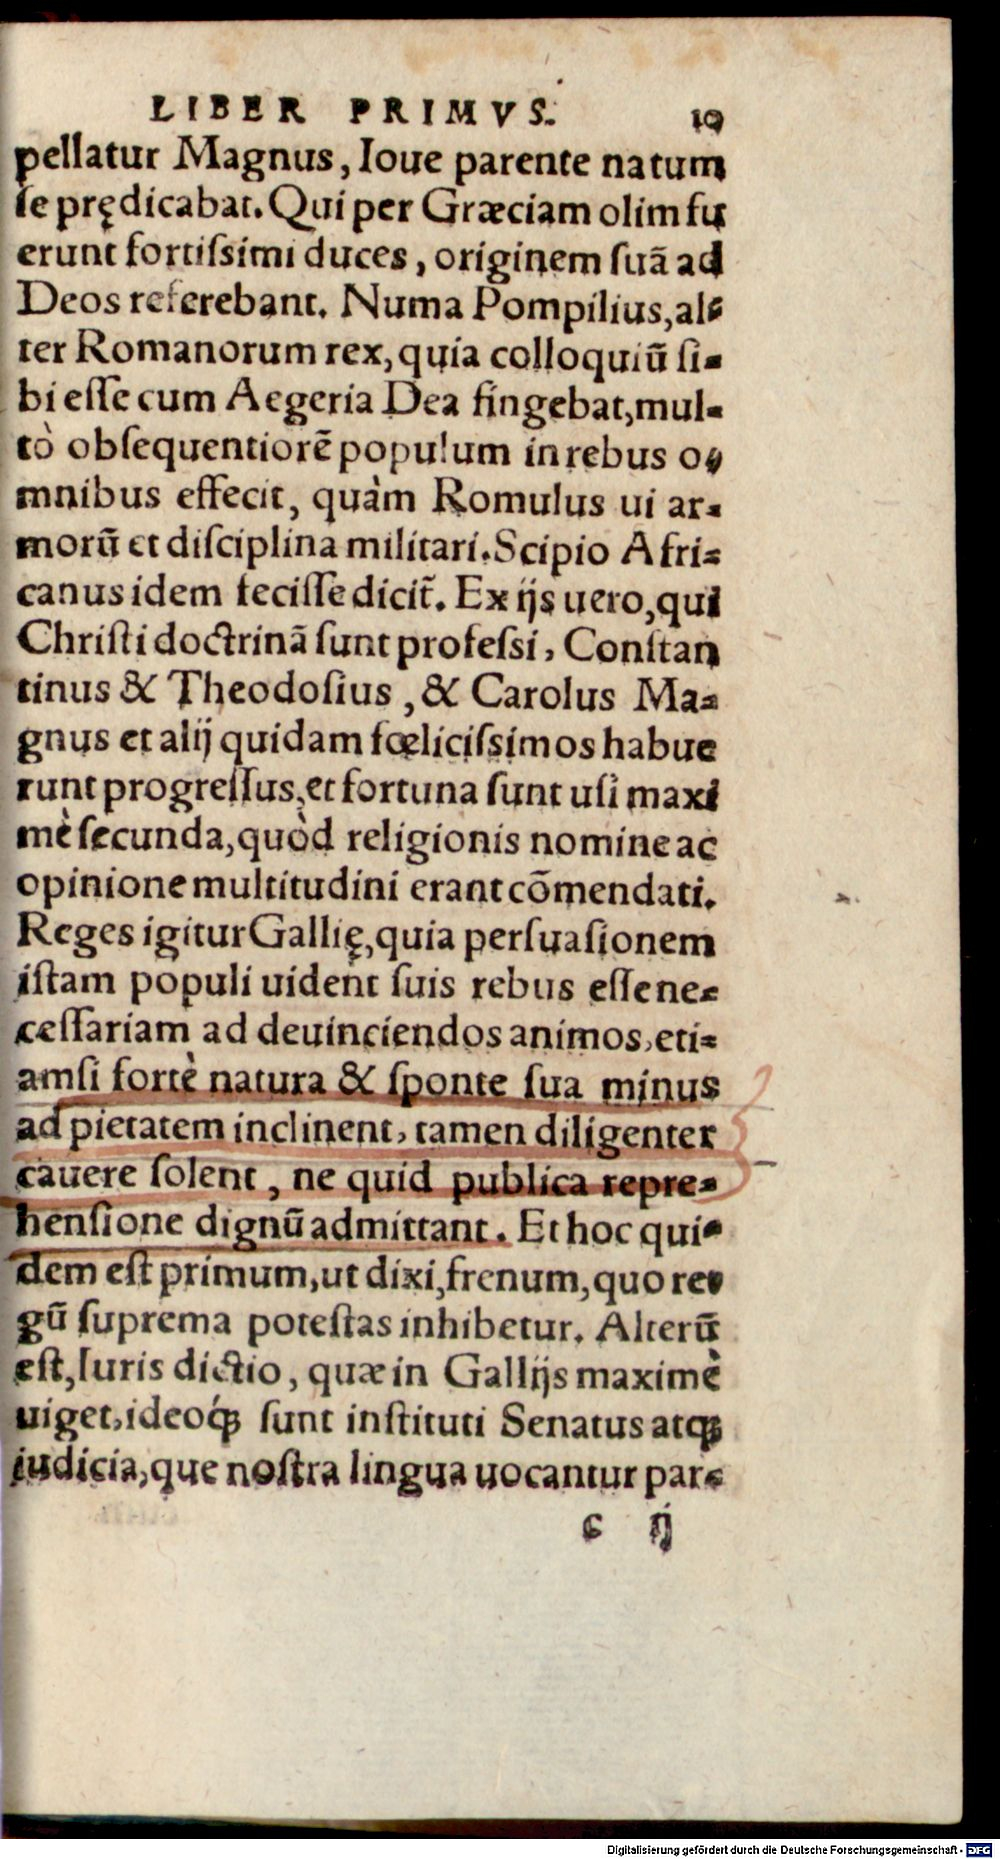 LIBER PRIMVS. 19
pellatur Magnus, Ioue parente natum
se prędicabat. Qui per Græciam olim fu
erunt fortissimi duces, originem suã ad
Deos referebant. Numa Pompilius, al-
ter Romanorum rex, quia colloquiũ si-
bi esse cum Aegeria Dea fingebat, mul-
tò obsequentiorẽ populum in rebus o-
mnibus effecit, quàm Romulus ui ar-
morũ et disciplina militari. Scipio Afri-
canus idem fecisse dicit̃. Ex ijs uero, qui
Christi doctrinã sunt professi, Constan
tinus & Theodosius, & Carolus Ma-
gnus et alij quidam fœlicissimos habue
runt progressus, et fortuna sunt usi maxi
mè secunda, quòd religionis nomine ac
opinione multitudini erant cõmendati.
Reges igitur Gallię, quia persuasionem
istam populi uident suis rebus esse ne-
cessariam ad deuinciendos animos, eti-
amsi fortè natura & sponte sua minus
ad pietatem inclinent, tamen diligenter
cauere solent, ne quid publica repre-
hensione dignũ admittant. Et hoc qui-
dem est primum, ut dixi, frenum, quo re-
gũ suprema potestas inhibetur. Alterũ
est, Iuris dictio, quæ in Gallijs maximè
uiget, ideoq́ꝫ sunt instituti Senatus atqꝫ
iudicia, que nostra lingua uocantur par-
c ij
Digitalisierung gefördert durch die Deutsche Forschungsgemeinschaft - DFG